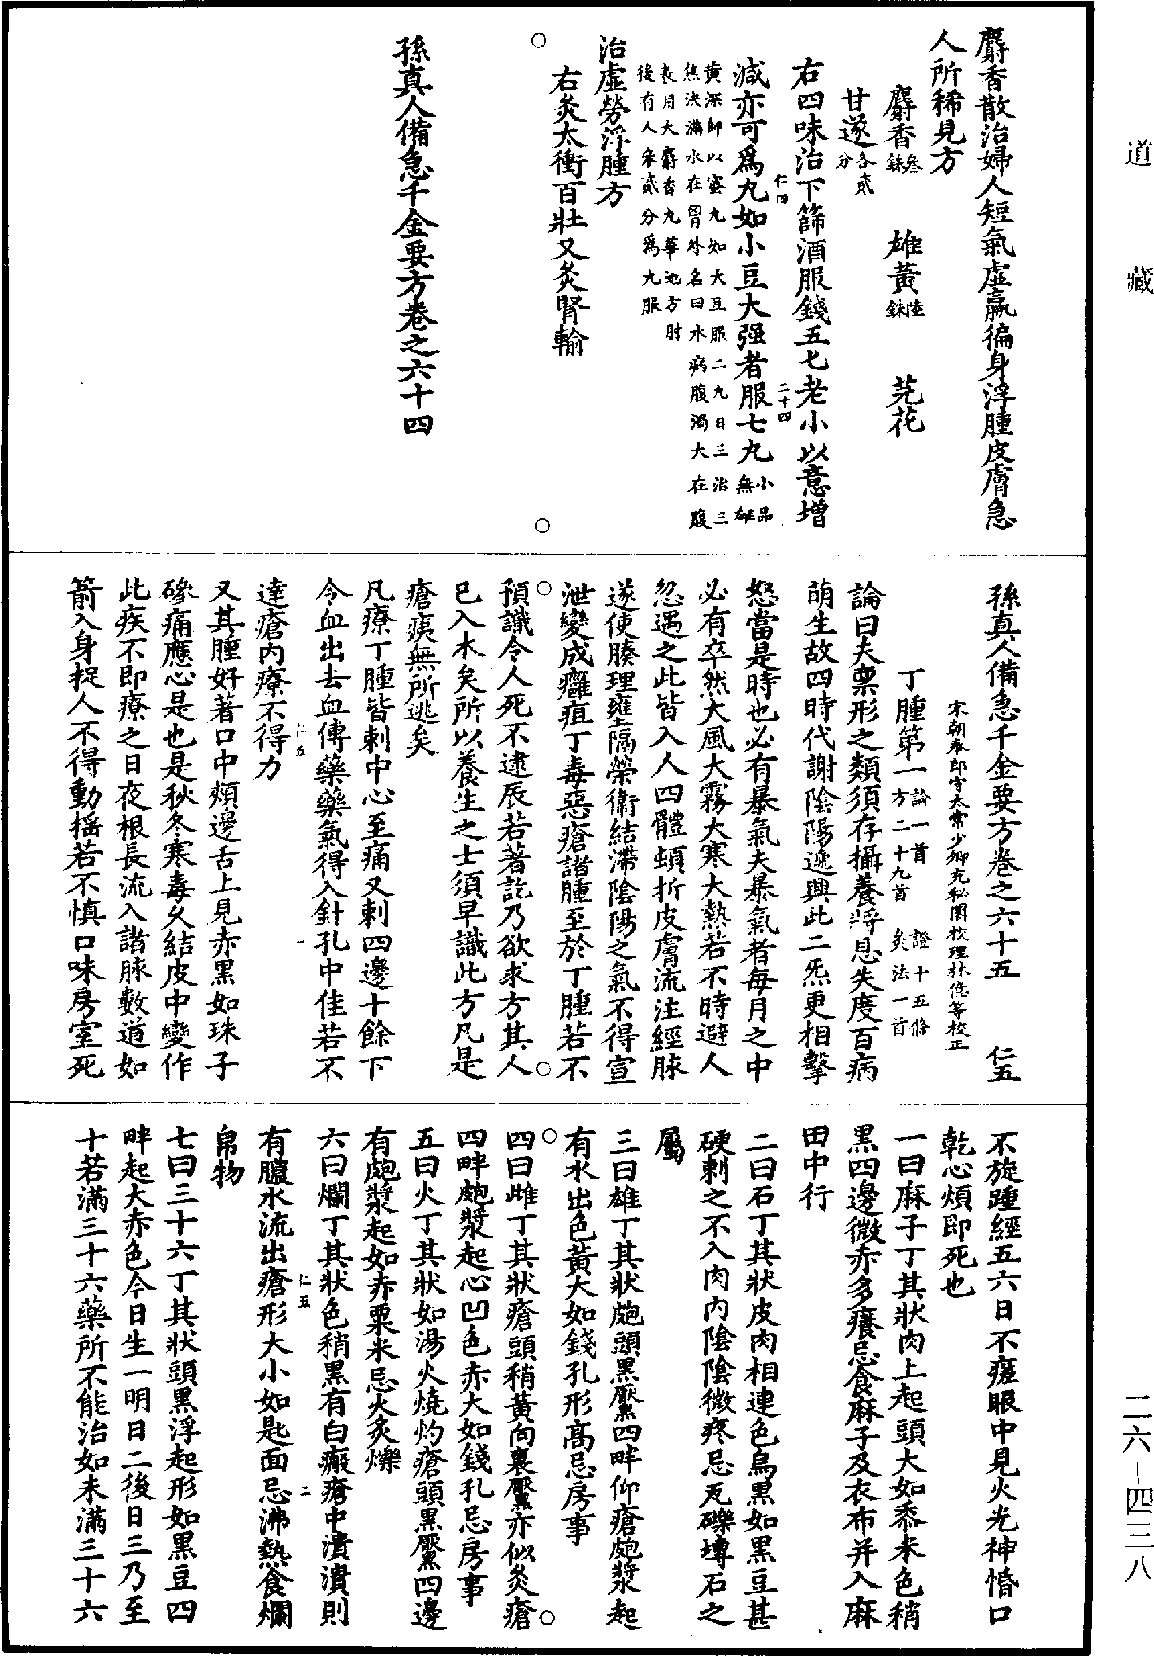 道藏
麝香散治婦人短氣虛羸徧身浮腫皮膚急
人所稀見方
麝香叁銖 雄黃陸銖 芫花
甘遂各貳分
右四味治下篩酒服錢五匕老小以意增
仁四 二十四
減亦可為丸如小豆大强者服七丸小品無雄
黃深師以蜜丸如大豆服二丸日三法三
焦決漏水在胷外名曰水病腹濁大在腹
表用大麝香丸華池方肘
後有人參貳分為丸服
治虛勞浮腫方
右灸太衝百壯又灸腎輸
孫真人備急千金要方卷之六十四
孫真人備急千金要方卷之六十五 仁五
宋朝奉郎守太常少卿充秘閣校理林億等校正
丁腫第一論一首 證十五條 方二十九首 灸法一首
論曰夫禀形之類須存攝養將息失度百病
萌生故四時代謝陰陽遞興此二炁更相擊
怒當是時也必有暴氣夫暴氣者每月之中
必有卒然大風大霧大寒大熱若不時避人
忽遇之此皆入人四體頓折皮膚流注經脉
遂使腠理壅隔榮衛結滯陰陽之氣不得宣
泄變成癰疽丁毒惡瘡諸腫至於丁腫若不
預識令人死不逮辰若著訖乃欲求方其人
已入木矣所以養生之士須早識此方凡是
瘡痍無所逃矣
凡療丁腫皆刺中心至痛又刺四邊十餘下
令血出去血傅藥藥氣得入針孔中佳若不
達瘡內療不得力
仁五 一
又其腫好著口中頰邊舌上見赤黑如珠子
磣痛應心是也是秋冬寒毒久結皮中變作
此疾不即療之日夜根長流入諸脉數道如
箭入身捉人不得動搖若不慎口味房室死
不旋踵經五六日不瘥眼中見火光神惛口
乾心煩即死也
一曰麻子丁其狀肉上起頭大如黍米色稍
黑四邊微赤多癢忌食麻子及衣布并入麻
田中行
二曰石丁其狀皮肉相連色烏黑如黑豆甚
硬刺之不入肉內陰陰微疼忌瓦礫塼石之
屬
三曰雄丁其狀皰頭黑黶四畔仰瘡皰漿起
有水出色黃大如錢孔形高忌房事
四曰雌丁其狀瘡頭稍黃向裏黶亦似灸瘡
四畔皰漿起心凹色赤大如錢孔忌房事
五曰火丁其狀如湯火燒灼瘡頭黑黶四邊
有皰漿起如赤粟米忌火炙爍
六曰爛丁其狀色稍黑有白瘢瘡中潰潰則
仁五 二
有膿水流出瘡形大小如匙面忌沸熱食爛
帛物
七曰三十六丁其狀頭黑浮起形如黑豆四
畔起大赤色今日生一明日二後日三乃至
十若滿三十六藥所不能治如未滿三十六
二六-四三八